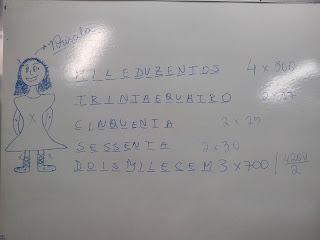 MILEDUZENTOS 4 x 300
TRINTAEQUATRO 2x17
CINQUENTA 2 x 25
SESSENTA 2 x 30
DOISMILECEM 3 x 700 | 4200
2